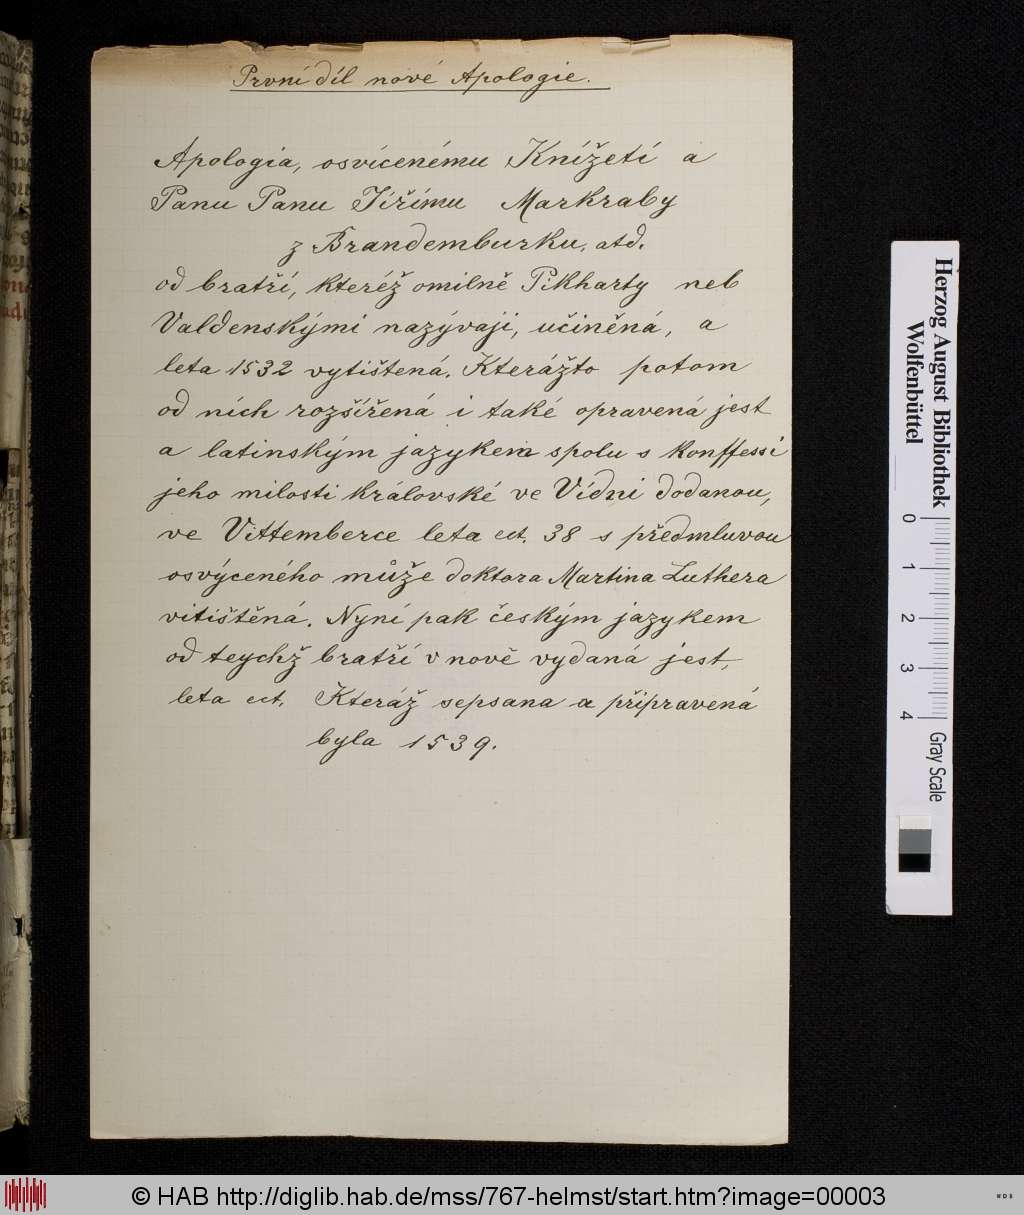 První díl nové Apologie.
Apologia, osvícenému Knížeti a
Panu Panu Jiřímu Markraby
z Brandemburku, atd.
od bratří, kteréž omilně Pikharty neb
Valdenskými nazývaji, učiněná, a
leta 1532 vytištená. Kterážto potom
od nich rozšířená i také opravená jest
a latinským jazykem spolu s Konffessí
jeho milosti královské ve Vídni dodanou,
ve Vittemberce leta ect. 38 s předmluvou
osvýceného může doktora Martina Luthera
vitištěná. Nyní pak českým jazykem
od teychž bratří v nově vydaná jest,
leta ect. Kteráž sepsana a připravená
byla 1539.
Herzog August Bibliothek
Wolfenbüttel
0 1 2 3 4
Gray Scale
© HAB http://diglib.hab.de/mss/767-helmst/start.htm?image=00003